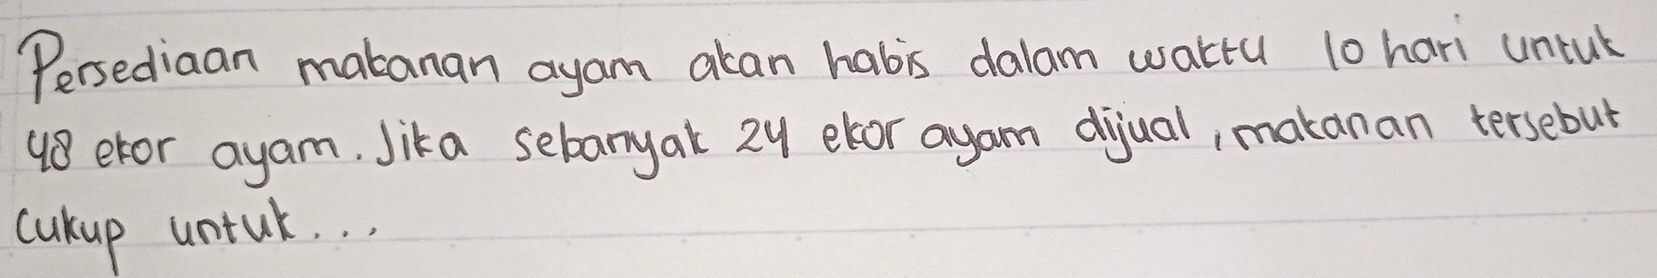 Persediaan makanan ayam akan habis dalam waktu 10 hari untuk
48 ekor ayam. Jika sebanyak 24 ekor ayam dijual, makanan tersebut
cukup untuk...